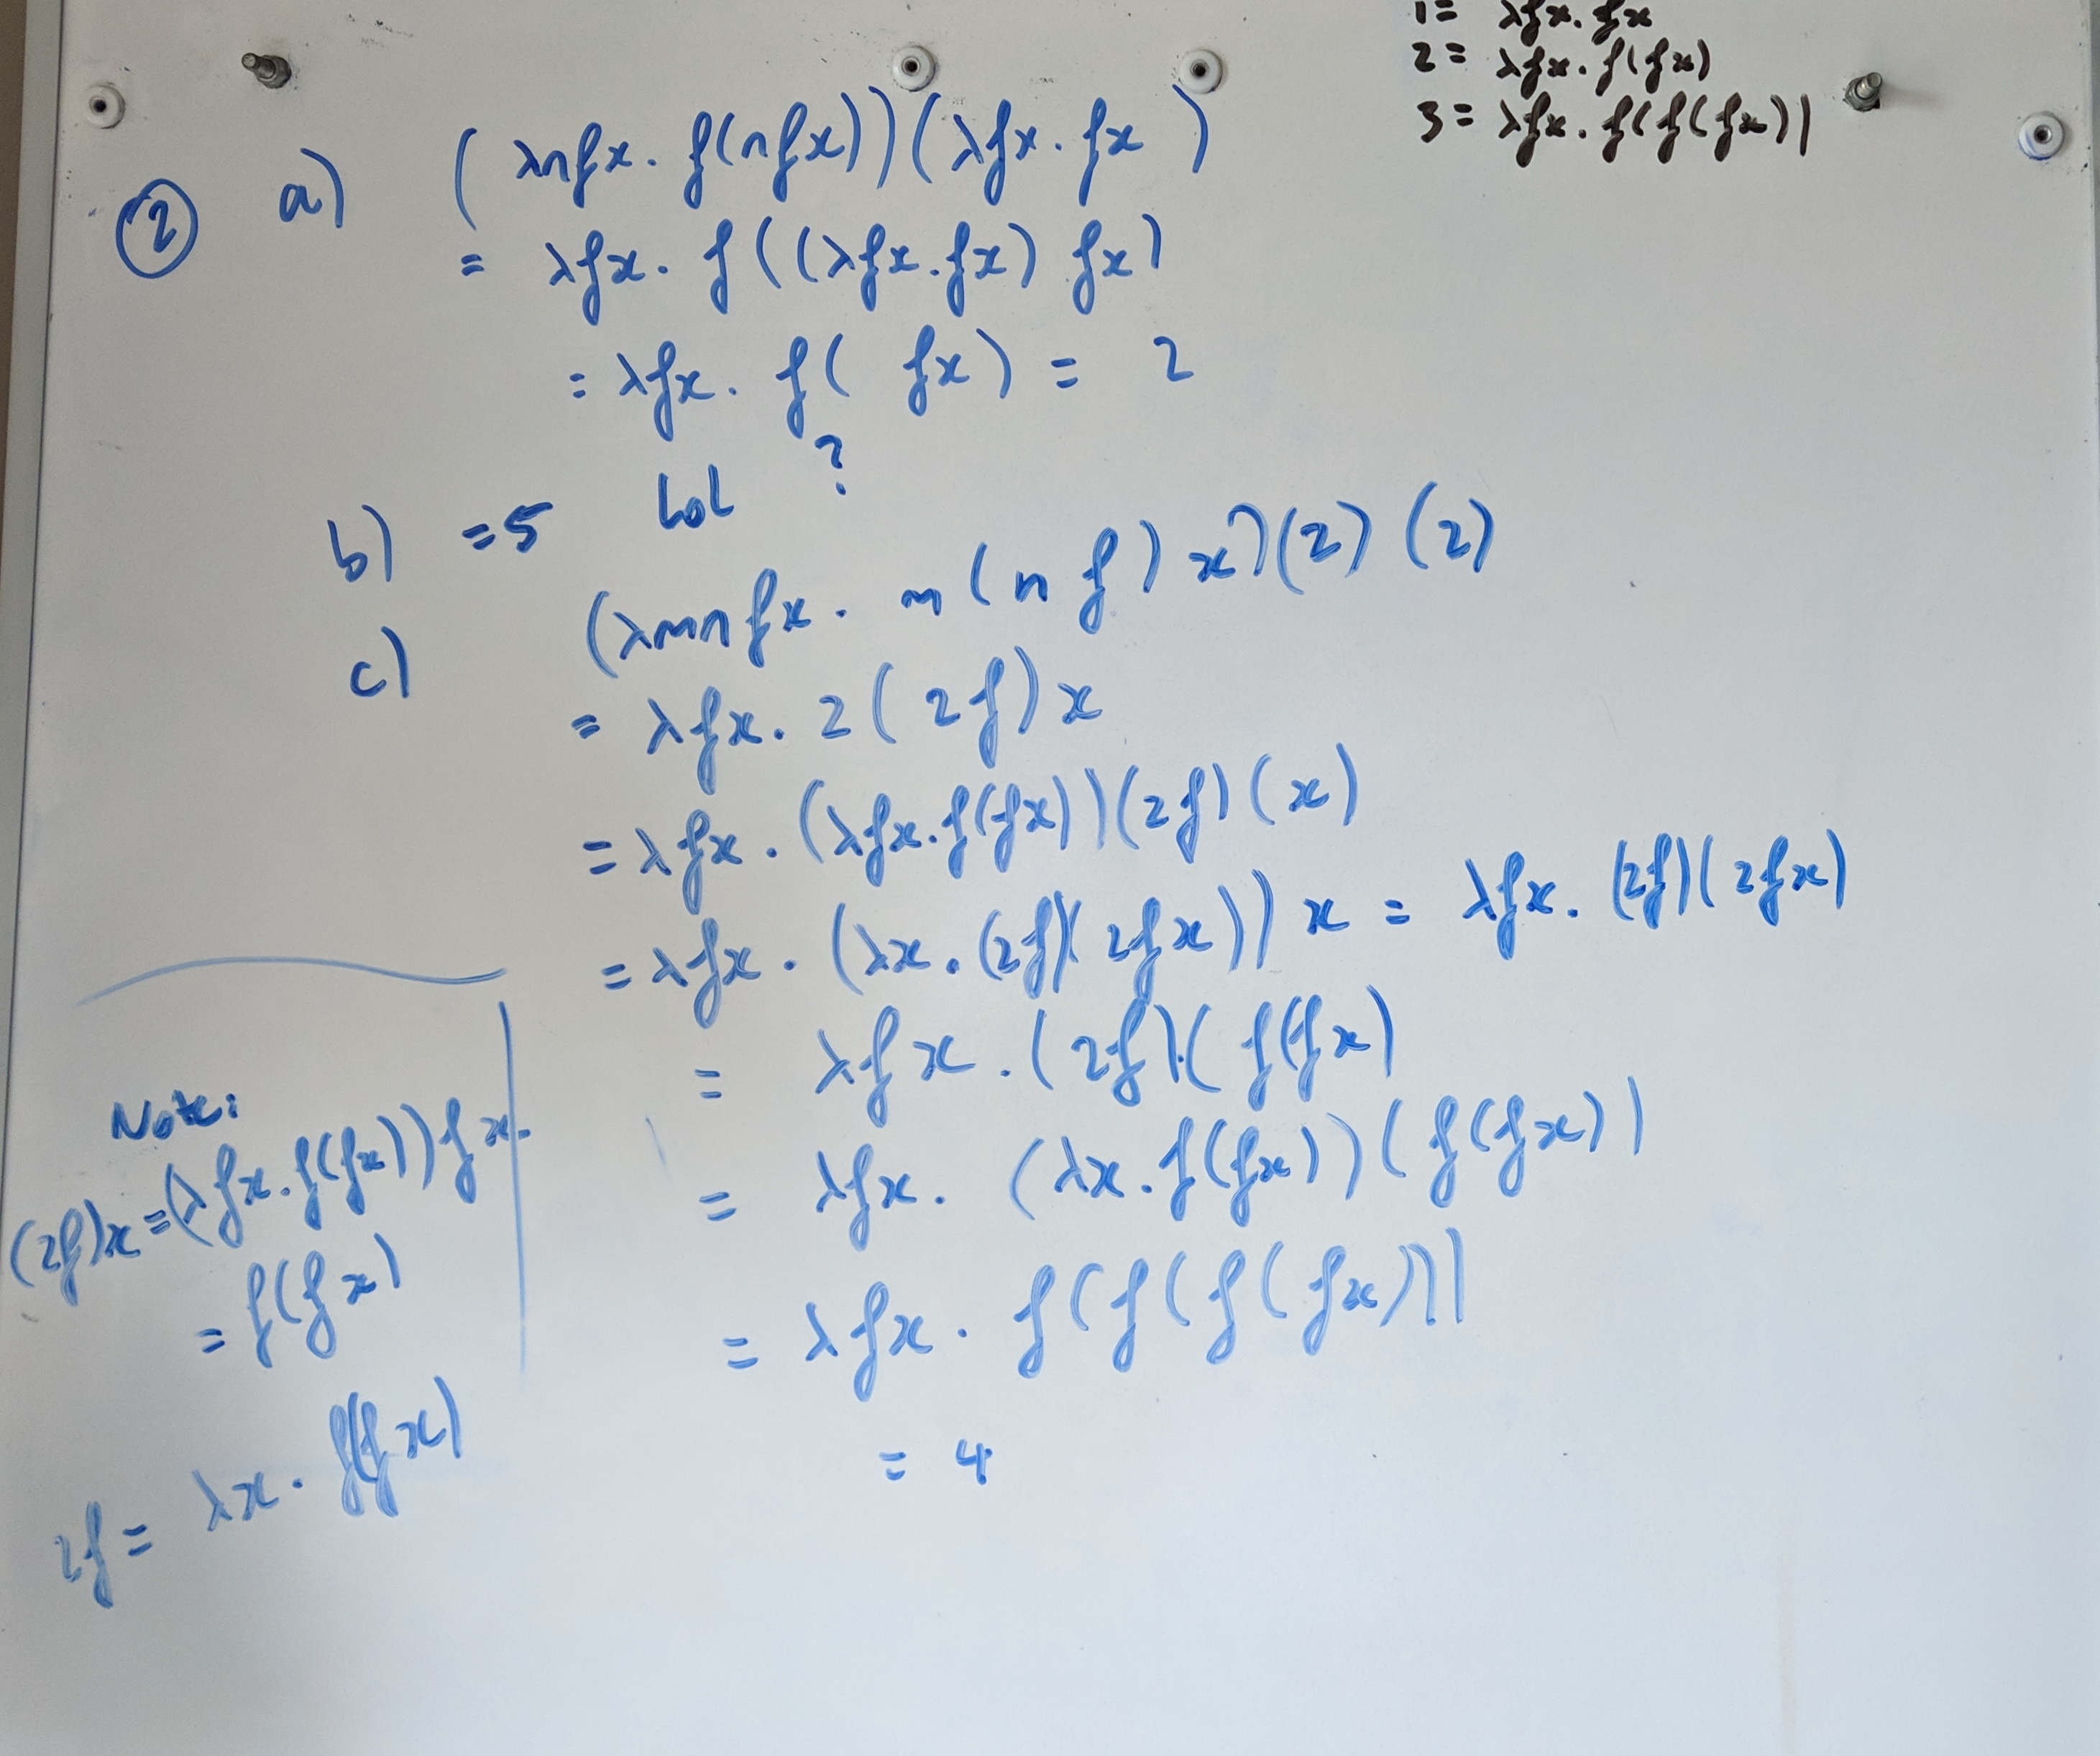 1= λfx. fx
2= λfx. f(fx)
3= λfx. f(f(fx))
② a) (λnfx. f(nfx))(λfx. fx)
= λfx. f((λfx.fx) fx)
= λfx. f( fx) = 2
b) =5 LOL ?
c) (λmnfx. m(n f) x)(2) (2)
= λfx. 2( 2f) x
= λfx. (λfx.f(fx))(2f) (x)
= λfx. (λx. (2f)(2fx)) x = λfx. (2f)(2fx)
= λfx. (2f)(f(fx)
= λfx. (λx. f(fx))(f(fx))
= λfx. f(f(f(fx))
= 4
Note:
(2f)x=(λfx. f(fx))fx.
= f(fx)
2f= λx. f(fx)